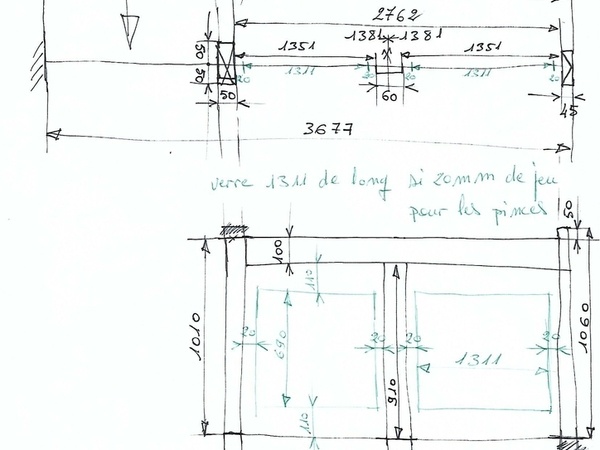 2762
1381 1381
50 1351 1351
50 20 1311 20 20 1311 20
50 60 45
3677
verre 1311 de long si 20mm de jeu
pour les pinces
50
100
110
1010 20 690 20 20 910 1311 20 1060
110